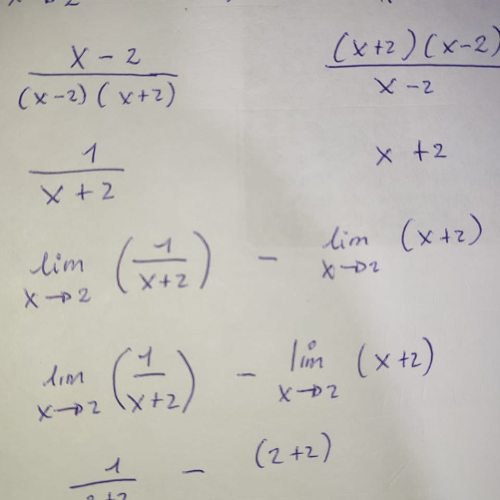 x → 2
(x-2) / ((x-2)(x+2))    ((x+2)(x-2)) / (x-2)
1 / (x+2)    x+2
lim x→2 (1 / (x+2)) - lim x→2 (x+2)
lim x→2 (1 / (x+2)) - lim x→2 (x+2)
1 / (2+2) - (2+2)